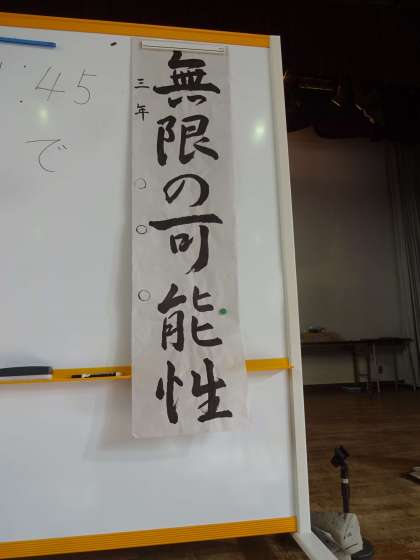 無限の可能性
三年 ○○○
:45
で